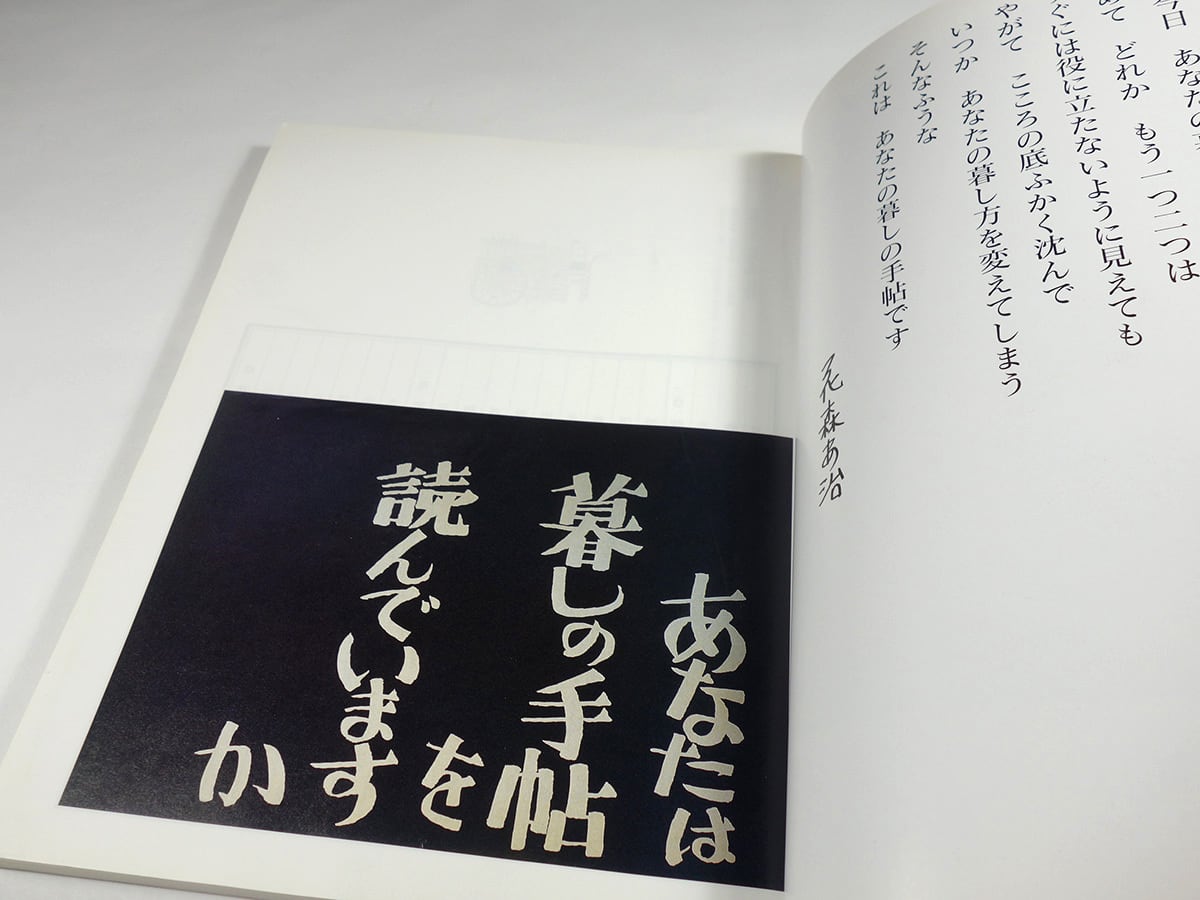 今日 あなたの
めて どれか もう一つ二つは
ぐには役に立たないように見えても
やがて こころの底ふかく沈んで
いつか あなたの暮し方を変えてしまう
そんなふうな
これは あなたの暮しの手帖です
花森安治
あなたは
暮しの手帖
を
読んでいます
か